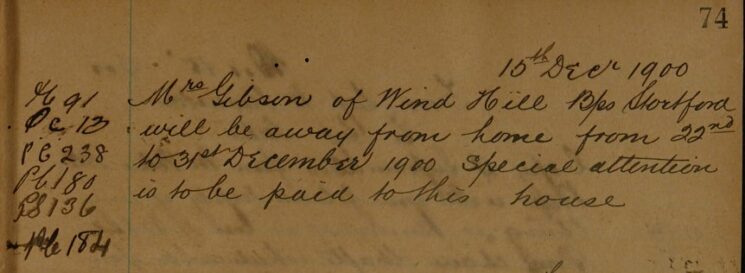 74
15th Decr 1900
Mrs Gibson of Wind Hill Bps Stortford
will be away from home from 22nd
to 31st December 1900 Special attention
is to be paid to this house
91
Pc 13
PC 238
PC 180
PS 136
Pc 184